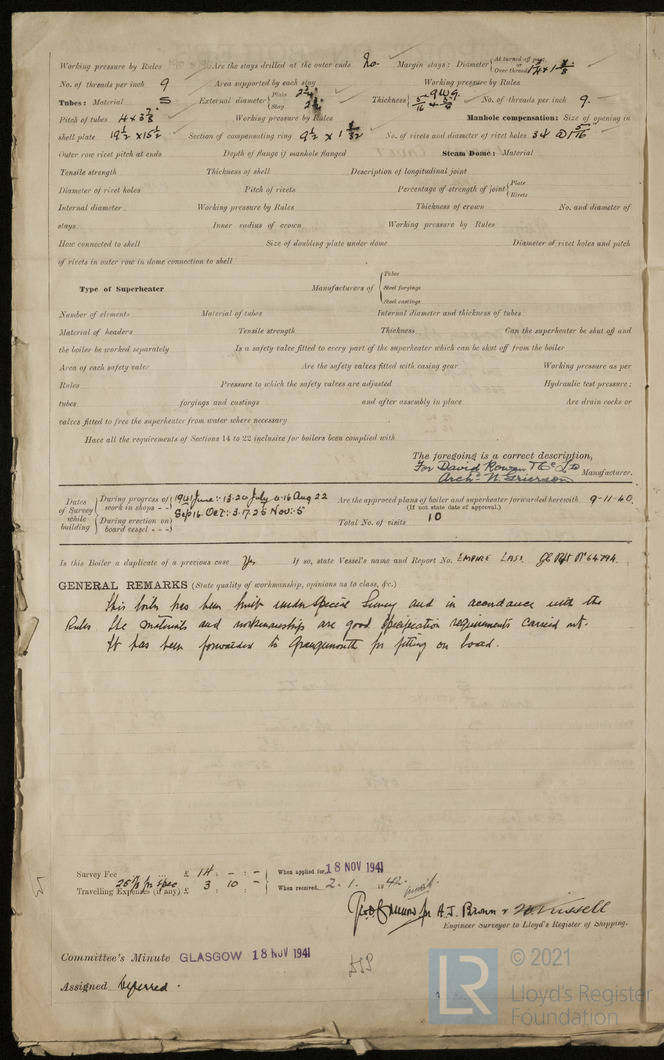 Working pressure by Rules Are the stays drilled at the outer ends No. Margin stays: Diameter { At turned off part, or Over threads
No. of threads per inch 9 Area supported by each stay Working pressure by Rules
Tubes: Material S External diameter { Plate Stay Thickness { 9 W.G. No. of threads per inch 9.
Pitch of tubes Working pressure by Rules Manhole compensation: Size of opening in
shell plate 19½ x 15½ Section of compensating ring No. of rivets and diameter of rivet holes
Outer row rivet pitch at ends Depth of flange if manhole flanged Steam Dome: Material
Tensile strength Thickness of shell Description of longitudinal joint
Diameter of rivet holes Pitch of rivets Percentage of strength of joint { Plate Rivets
Internal diameter Working pressure by Rules Thickness of crown No. and diameter of
stays Inner radius of crown Working pressure by Rules
How connected to shell Size of doubling plate under dome Diameter of rivet holes and pitch
of rivets in outer row in dome connection to shell
Type of Superheater Manufacturers of { Tubes Steel forgings Steel castings
Number of elements Material of tubes Internal diameter and thickness of tubes
Material of headers Tensile strength Thickness Can the superheater be shut off and
the boiler be worked separately Is a safety valve fitted to every part of the superheater which can be shut off from the boiler
Area of each safety valve Are the safety valves fitted with easing gear Working pressure as per
Rules Pressure to which the safety valves are adjusted Hydraulic test pressure:
tubes forgings and castings and after assembly in place Are drain cocks or
valves fitted to free the superheater from water where necessary
Have all the requirements of Sections 14 to 22 inclusive for boilers been complied with
The foregoing is a correct description,
For David Rowan & Co Ld
Archd N. Grierson Manufacturer.
Dates of Survey while building { During progress of work in shops - - 1941 June: 13. 20 July 4. 16 Aug 22
Sep 16 Oct: 3. 17. 25 Nov: 5
During erection on board vessel - - -
Are the approved plans of boiler and superheater forwarded herewith 9-11-40.
(If not state date of approval.)
Total No. of visits 10
Is this Boiler a duplicate of a previous case Yes If so, state Vessel's name and Report No. EMPIRE LASS. Gls Rpt No 64794.
GENERAL REMARKS (State quality of workmanship, opinions as to class, &c.)
This boiler has been built under Special Survey and in accordance with the
Rules the materials and workmanship are good Specification requirements carried out.
It has been forwarded to Grangemouth for fitting on board.
Survey Fee ... £ 14 : - : - When applied for, 18 NOV 1941
25% for spec
Travelling Expenses (if any) £ 3 : 10 : - When received, 2. 1. 1942.
for A.J. Brown & W. Russell
Engineer Surveyor to Lloyd's Register of Shipping.
Committee's Minute GLASGOW 18 NOV 1941
Assigned Deferred.
LR
© 2021
Lloyd's Register
Foundation